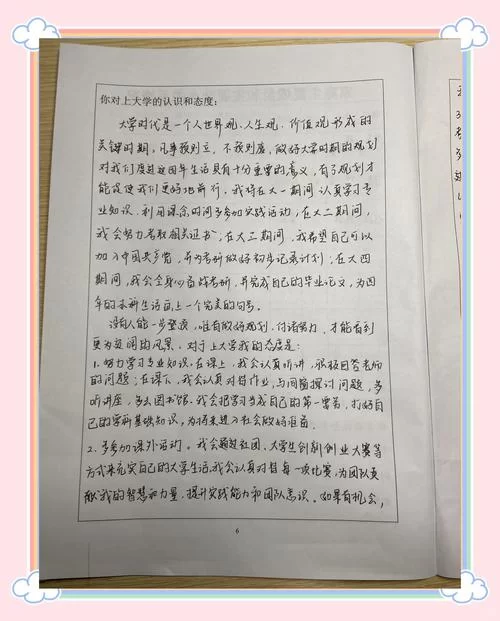 你对上大学的认识和态度:
大学时代是一个人世界观、人生观、价值观形成的
关键时期。凡事预则立,不预则废,做好大学时期的规划
对我们度过这四年生活具有十分重要的意义,有了规划才
能促使我们更好地前行。我将在大一期间认真学习专
业知识,利用课余时间多参加实践活动;在大二期间,
我会努力考取相关证书;在大三期间,我希望自己可以
加入中国共产党,并为考研做好初步记录计划;在大四
期间,我会全身心备战考研,并完成自己的毕业论文,为四
年的本科生活画上一个完美的句号。
没有人能一步登顶,唯有做好规划,付诸努力,才能看到
更为宽阔的风景。对于上大学我的态度是:
1.努力学习专业知识。在课上,我会认真听讲,积极回答老师
的问题;在课下,我会认真对待作业,与同窗探讨问题,多
听讲座,多去图书馆。我会把学习当成自己的第一要务,打好自
己的学科基础知识,为将来进入社会做好准备。
2.多参加课外活动。我会通过社团、大学生创新创业大赛等
方式来充实自己的大学生活。我会认真对待每一项比赛,为团队贡
献我的智慧和力量,提升实践能力和团队意识。如果有机会,
6